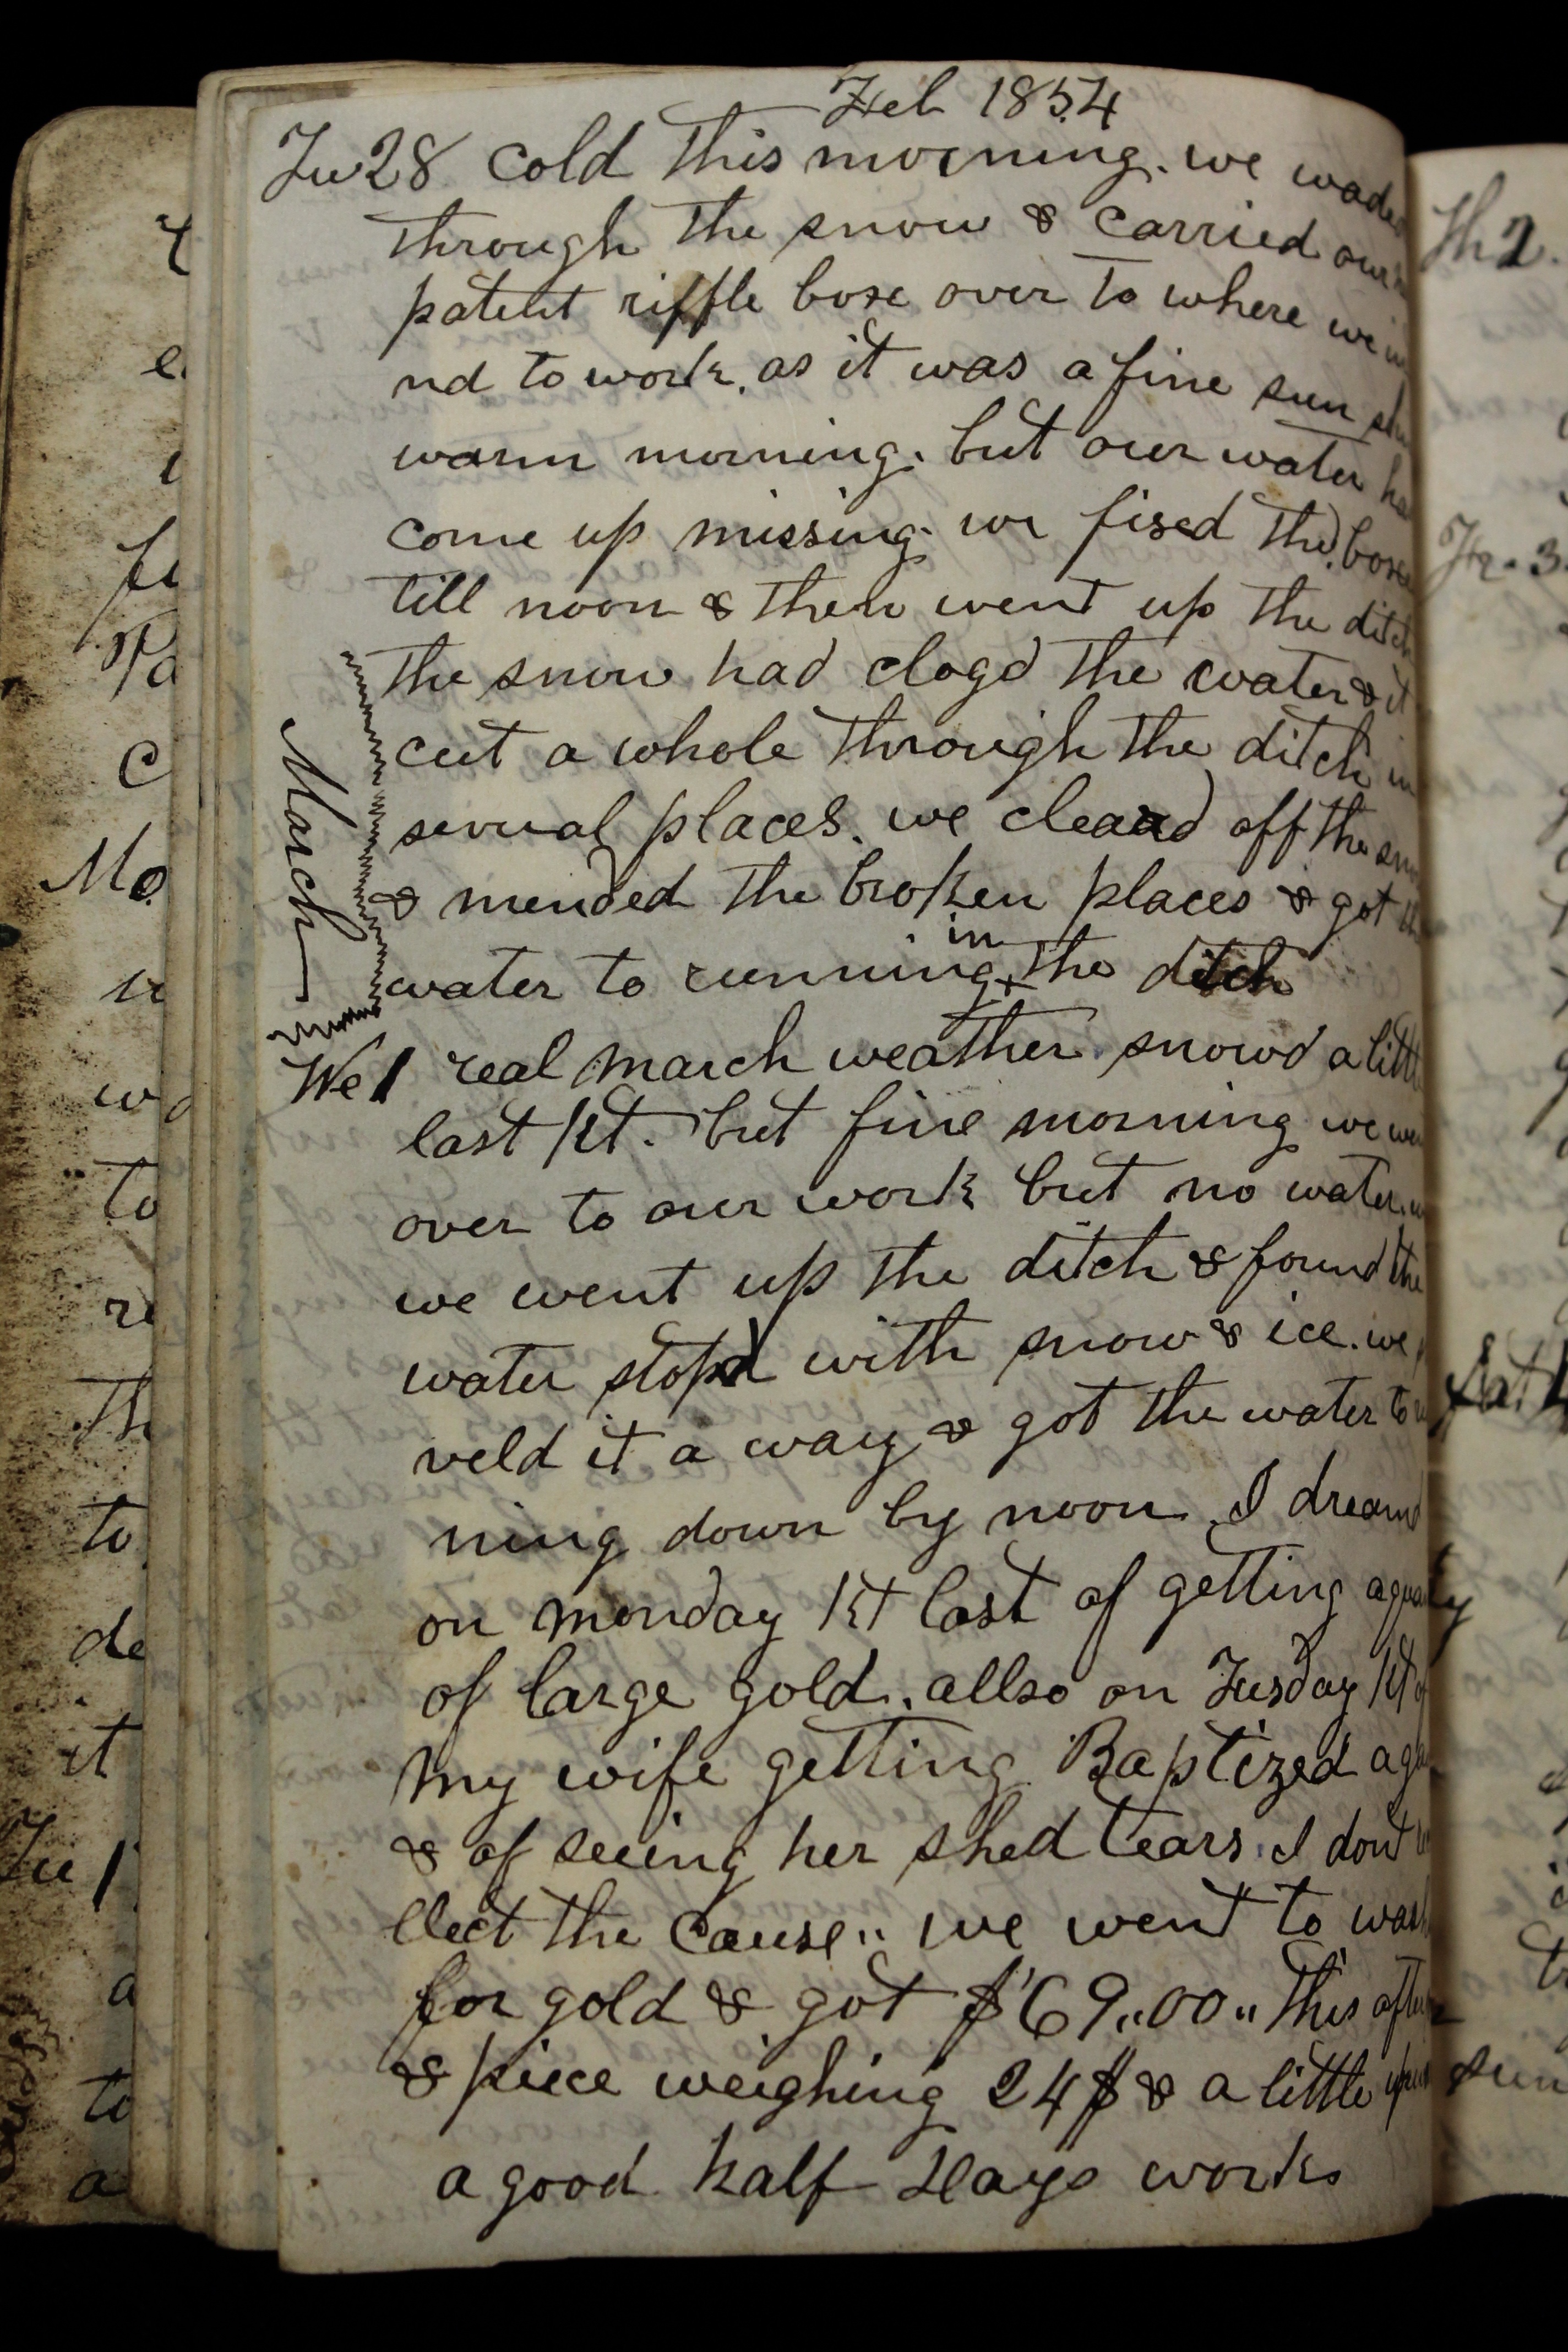 Feb 1854
Tu 28 cold this morning. we waded
through the snow & carried our
patent riffle boxe over to where we
nd to work. as it was a fine sun
warm morning. but our water
come up missing. we fixed the boxe
till noon & then went up the ditch
the snow had clogd the water & it
cut a whole through the ditch in
several places. we cleard off the
& mended the broken places & got
water to running in the ditch
March
We 1 real march weather. snowd a little
last Nt. but fine morning we
over to our work but no water.
we went up the ditch & found the
water stopd with snow & ice. we
veld it a way & got the water to
ning down by noon. I dreamd
on monday Nt last of getting a
of large gold. allso on Tusday Nt of
my wife getting Baptized
& of seeing her shed tears. I dont
llect the cause.. we went to
for gold & got $69,,00,, this
& piece weighing 24$ & a little
a good half Days works
Th 2.
Fr. 3.
Sat
fi
Mo
wo
to
re
Th
to
de
it
Tu
a
to
a